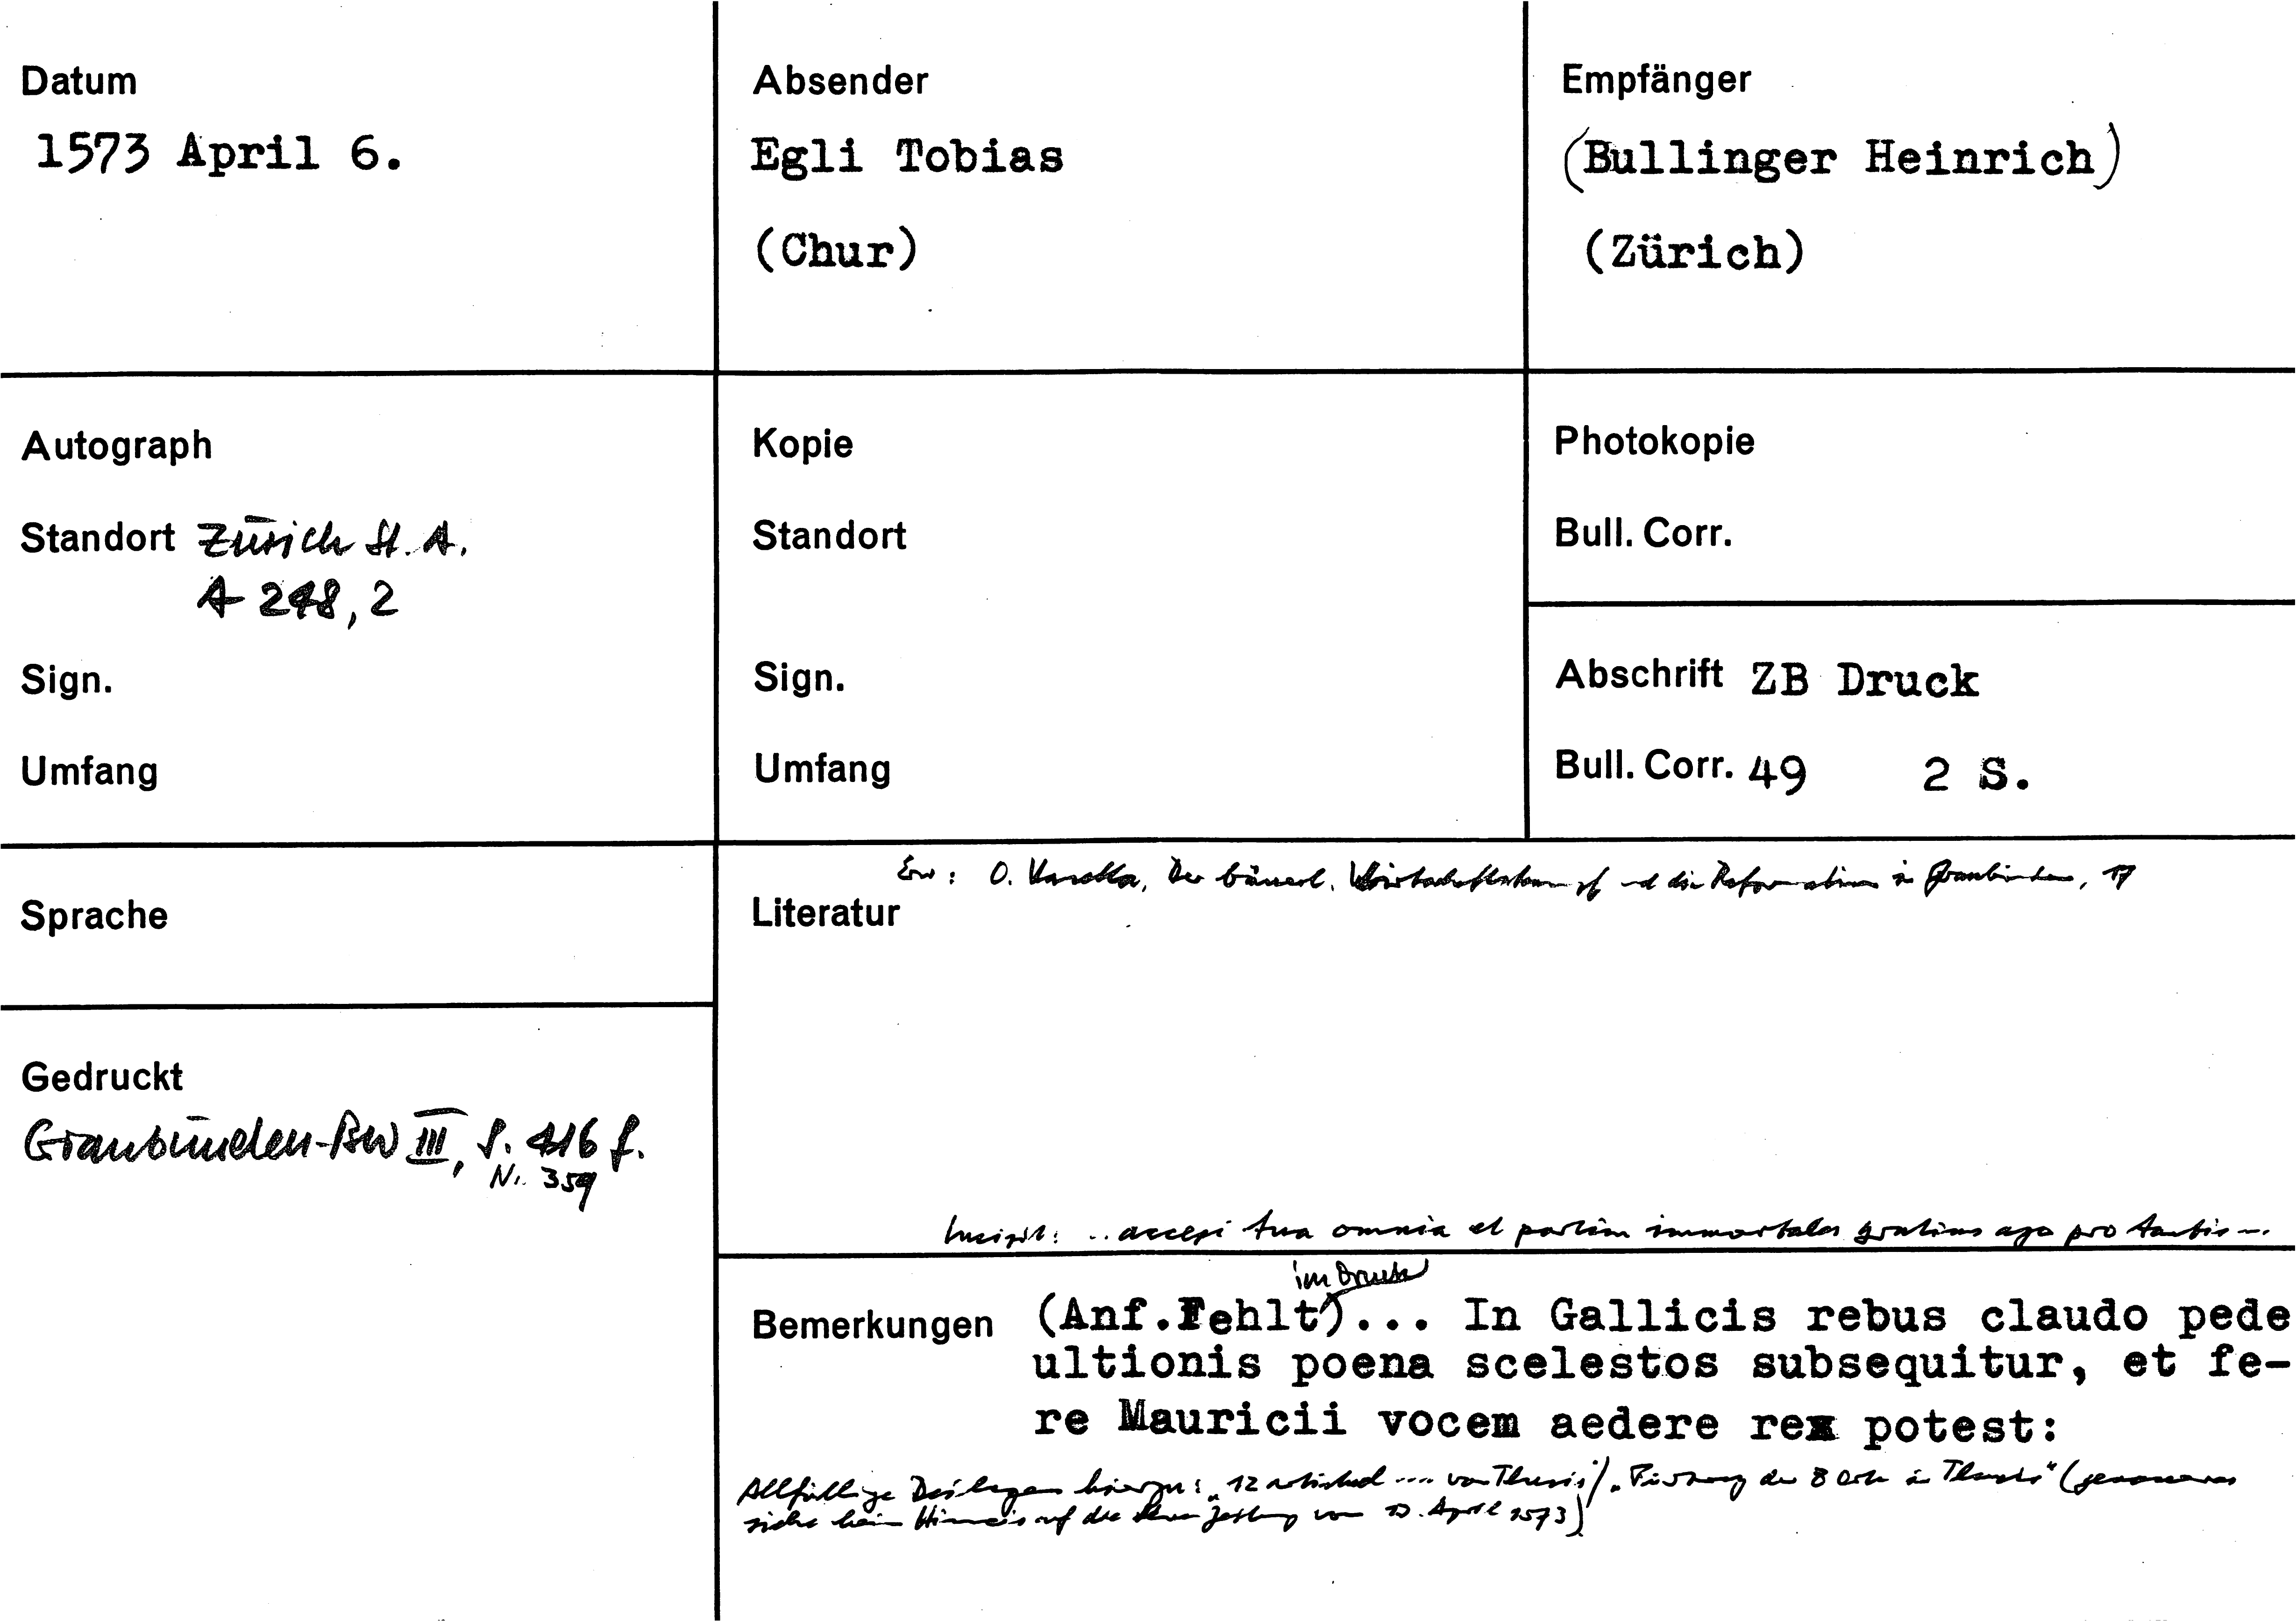 Datum
1573 April 6.
Absender
Egli Tobias
(Chur)
Empfänger
(Bullinger Heinrich)
(Zürich)
Autograph
Standort Zürich St. A.
A 248, 2
Sign.
Umfang
Kopie
Standort
Sign.
Umfang
Photokopie
Bull. Corr.
Abschrift ZB Druck
Bull. Corr. 49 2 S.
Sprache
Gedruckt
Graubünden-BW III, S. 416 f.
Nr. 359
Erw: O. Vasella, Der bäuerl. Wirtschaftskampf und die Reformation in Graubünden, 17
Literatur
Incipit: .. accepi tua omnia et partim immortales gratias ago pro tantis ...
im Druck
Bemerkungen (Anf.Fehlt)... In Gallicis rebus claudo pede
ultionis poena scelestos subsequitur, et fe-
re Mauricii vocem aedere rex potest:
Allfällige Beilagen hierzu: "12 artickel .... von Thusis / " der 8 Orte in Thusis" (genaueres
siehe beim Hinweis auf die Zeitung vom 13. April 1573)